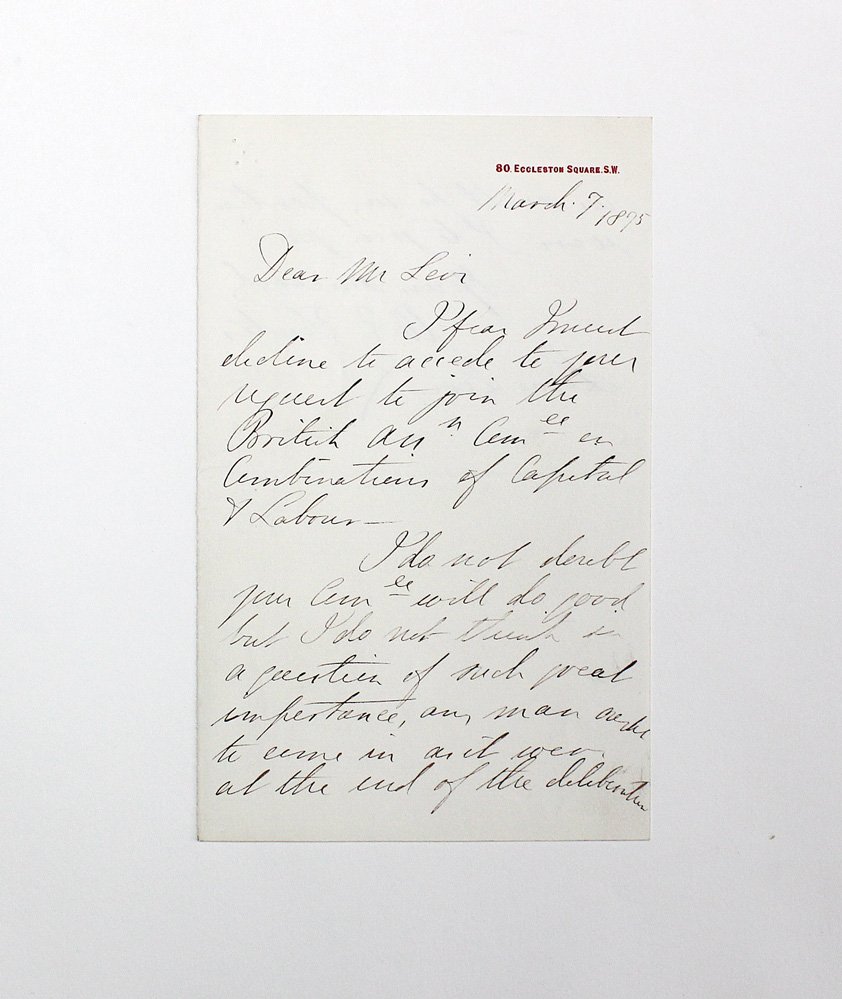 80. Eccleston Square. S.W.
March. 7. 1875
Dear Mr Levi
I fear I must
decline to accede to your
request to join the
British Assn Comee on
Combinations of Capital
& Labour—
I do not doubt
your Comee will do good
but I do not think in
a question of such great
importance, any man ought
to come in as it were
at the end of the deliberation